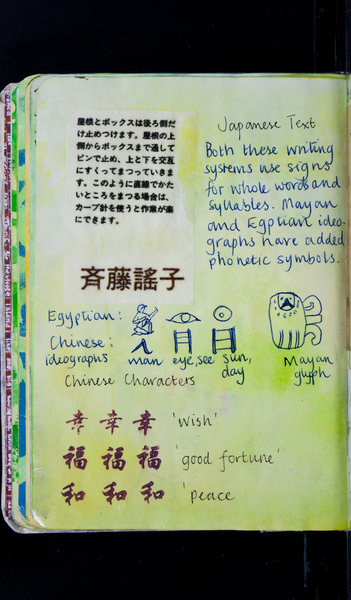 屋根とボックスは後ろ側だ
け止めつけます。屋根の上
側からボックスまで通して
ピンで止め、上と下を交互
にすくってまつっていきま
す。このように直線でかた
いところをまつる場合は、
カーブ針を使うと作業が楽
にできます。
斉藤謠子
Japanese Text
Both these writing
systems use signs
for whole words and
syllables. Mayan
and Egptian ideo-
graphs have added
phonetic symbols.
Egyptian:
Chinese:
ideographs
man eye, see sun,
day
Mayan
glyph
Chinese Characters
幸 幸 幸 'wish'
福 福 福 'good fortune'
和 和 和 'peace